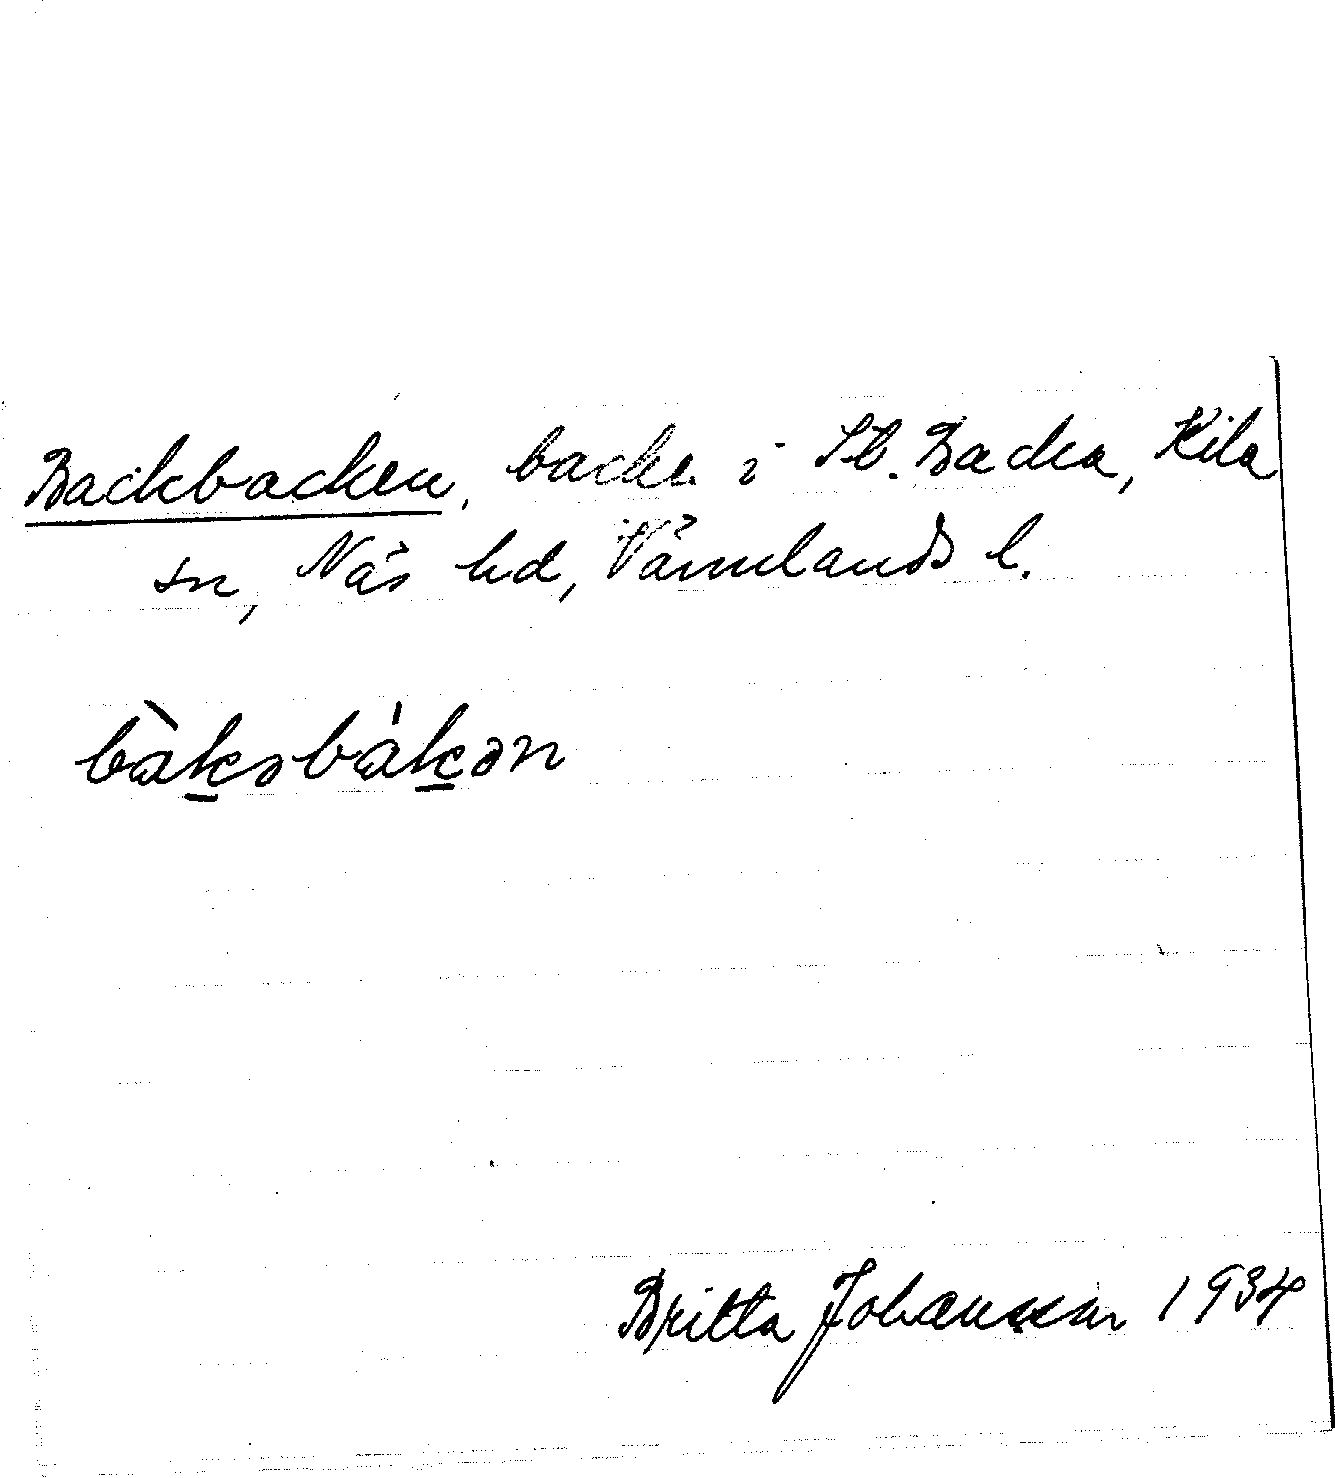 Backbacken, backe i St. Backa, Kila
sn, Näs hd, Värmlands l.
bàk̲əbák̲ən
Britta Johansson 1934